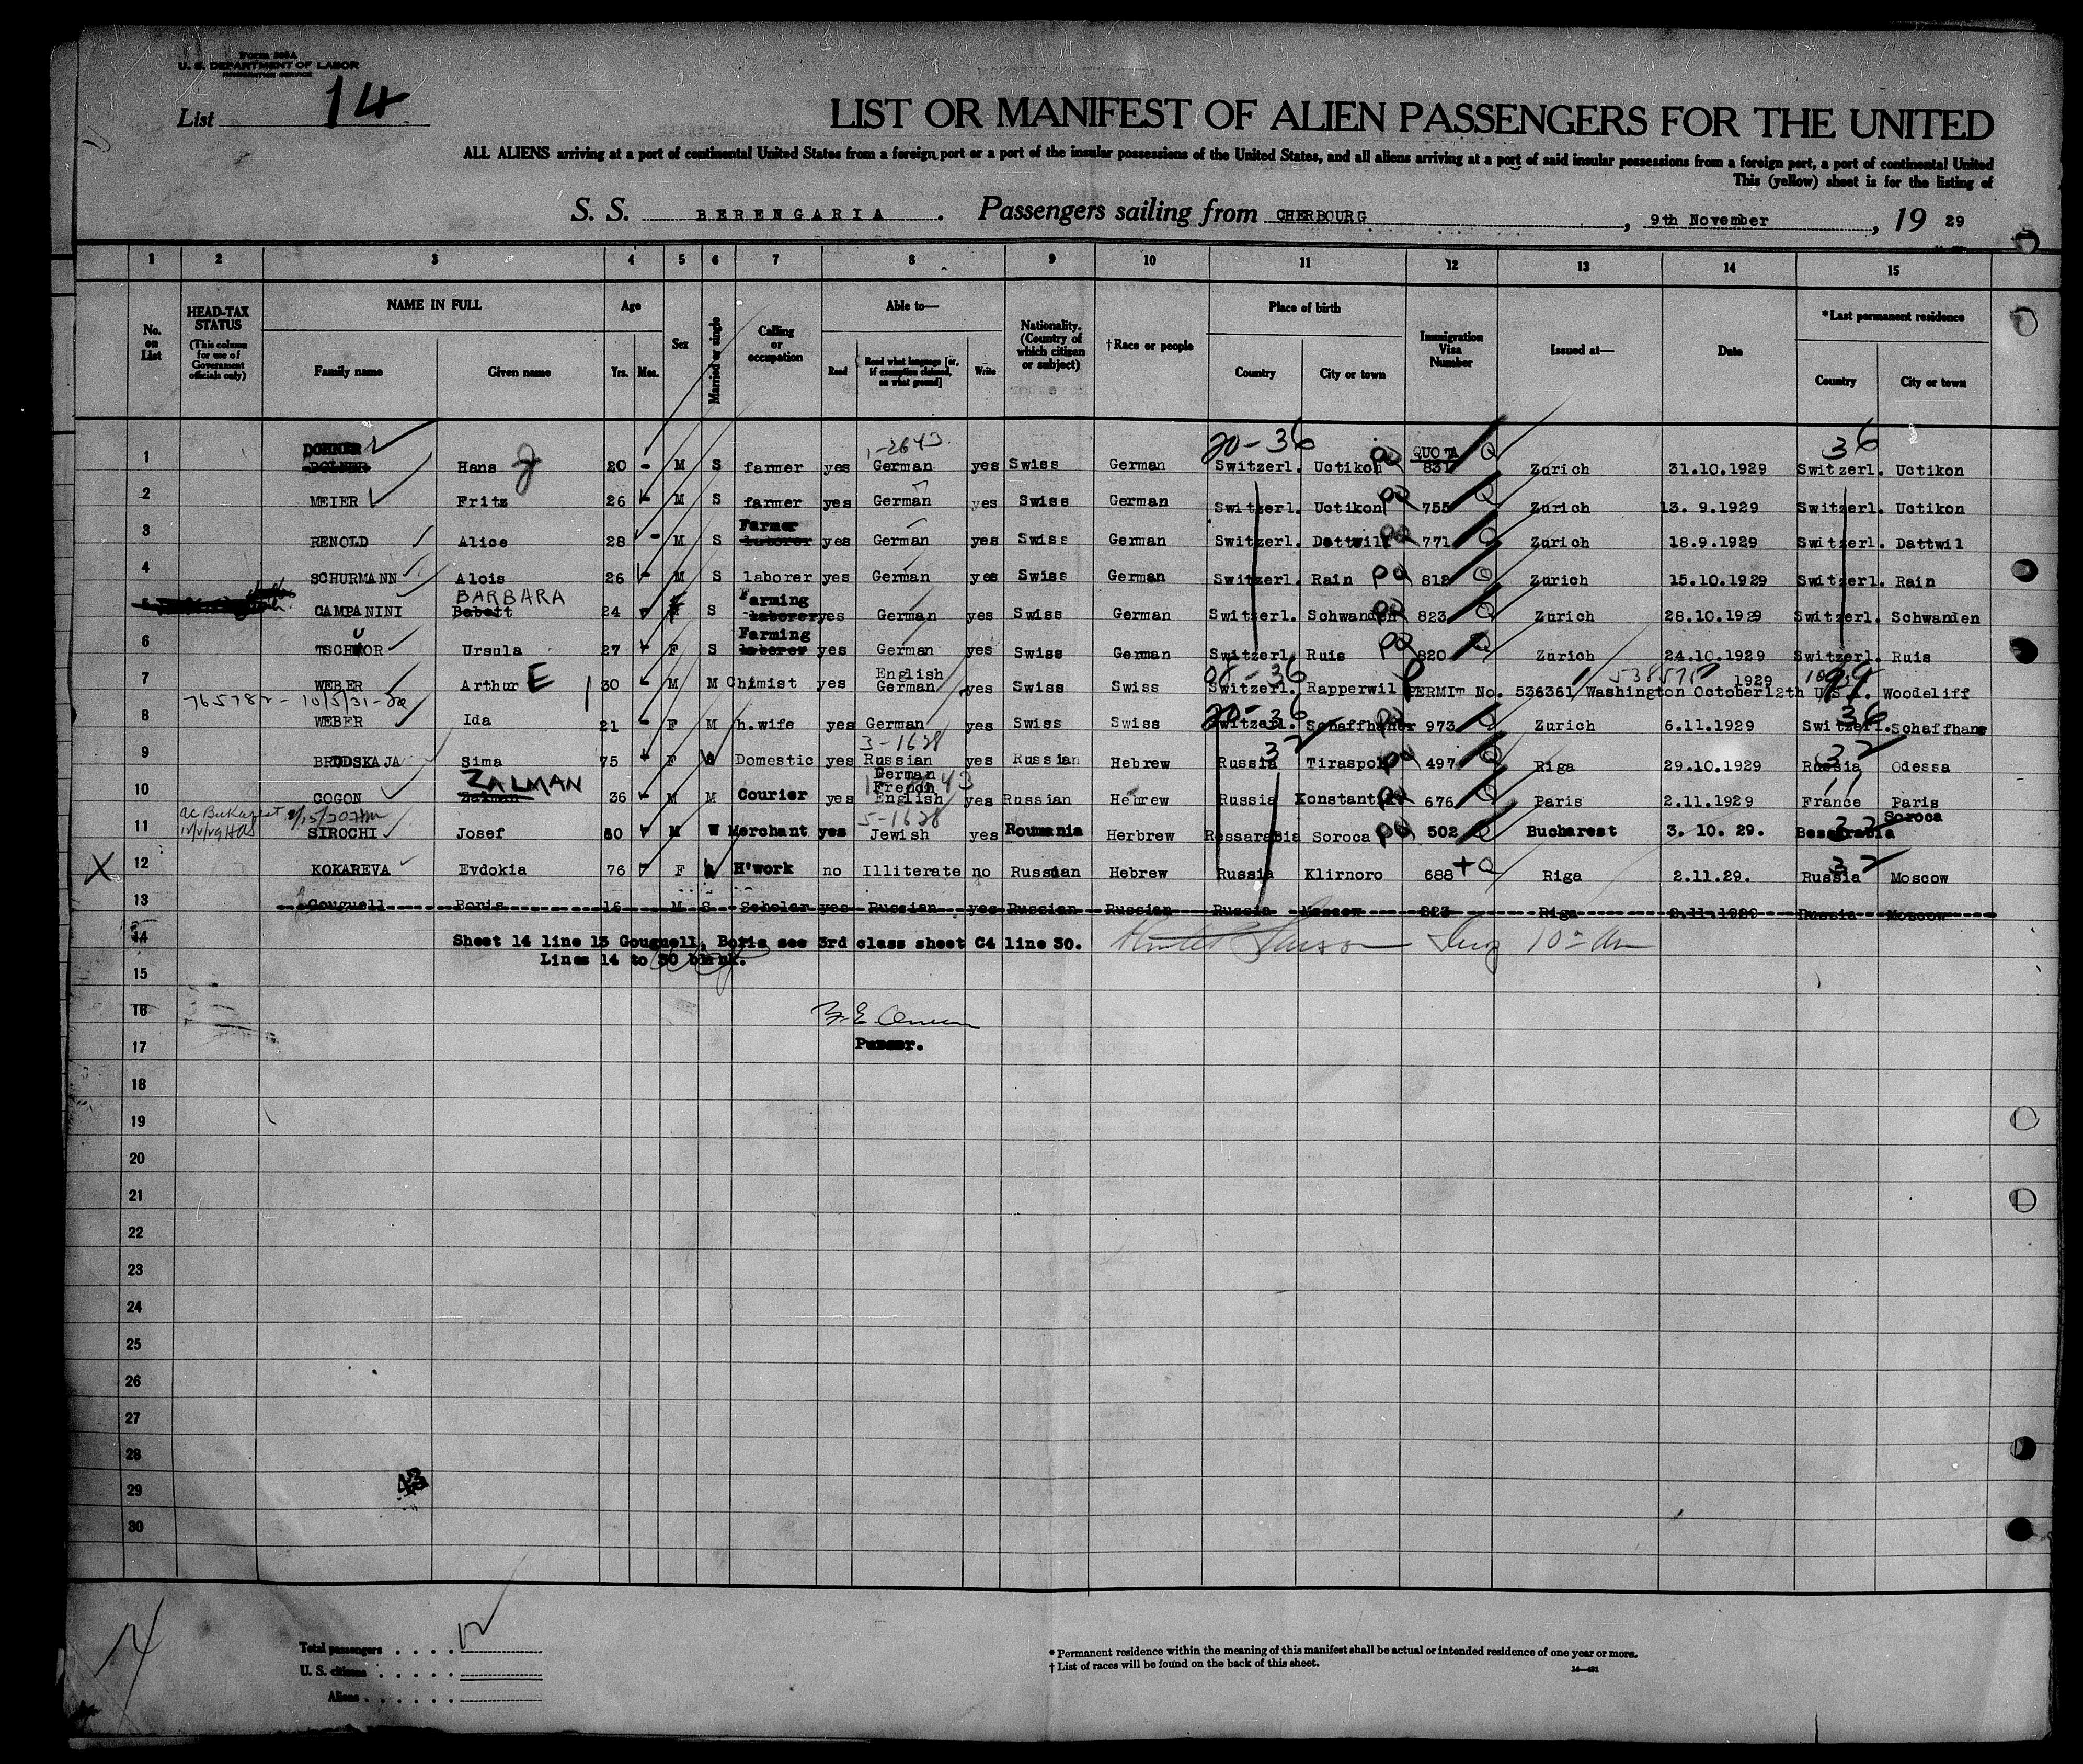 Form 500A
U. S. DEPARTMENT OF LABOR
IMMIGRATION SERVICE
List 14
LIST OR MANIFEST OF ALIEN PASSENGERS FOR THE UNITED
ALL ALIENS arriving at a port of continental United States from a foreign port or a port of the insular possessions of the United States, and all aliens arriving at a port of said insular possessions from a foreign port, a port of continental United
This (yellow) sheet is for the listing of
S. S. BERENGARIA . Passengers sailing from CHERBOURG , 9th November , 19 29
1 2 3 4 5 6 7 8 9 10 11 12 13 14 15
No. on List
HEAD-TAX STATUS (This column for use of Government officials only)
NAME IN FULL
Family name Given name
Age
Yrs. Mos.
Sex
Married or single
Calling or occupation
Able to—
Read Read what language [or, if exemption claimed, on what ground] Write
Nationality. (Country of which citizen or subject)
†Race or people
Place of birth
Country City or town
Immigration Visa Number
Issued at—
Date
*Last permanent residence
Country City or town
DOHNER 1-2643 20-36 QUOTA 36
1 Hans J 20 - M S farmer yes German yes Swiss German Switzerl. Uetikon PQ 831 Q Zurich 31.10.1929 Switzerl. Uetikon
2 MEIER Fritz 26 - M S farmer yes German yes Swiss German Switzerl. Uetikon PQ 755 Q Zurich 13. 9.1929 Switzerl. Uetikon
Farmer
3 RENOLD Alice 28 - M S laborer yes German yes Swiss German Switzerl. Dattwil PQ 771 Q Zurich 18.9.1929 Switzerl. Dattwil
4 SCHURMANN Alois 26 - M S laborer yes German yes Swiss German Switzerl. Rain PQ 812 Q Zurich 15.10.1929 Switzerl. Rain
BARBARA Farming
5 CAMPANINI Babett 24 F S laborer yes German yes Swiss German Switzerl. Schwanden PQ 823 Q Zurich 28.10.1929 Switzerl. Schwanden
U Farming
6 TSCHUOR Ursula 27 - F S laborer yes German yes Swiss German Switzerl. Ruis PQ 820 Q Zurich 24.10.1929 Switzerl. Ruis
English 36 1929 99
7 WEBER Arthur E 30 - M M Chimist yes German yes Swiss Swiss Switzerl. Rapperwil PERMIT No. 536361 Washington October 12th U.S.A. Woodcliff
765782 - 10/5/31 20-36 36
8 WEBER Ida 21 - F M h.wife yes German yes Swiss Swiss Switzerl. Schaffhauser PQ 973 Q Zurich 6.11.1929 Switzerl. Schaffhans
3-1628 32 32
9 BRODSKAJA Sima 75 - F W Domestic yes Russian yes Russian Hebrew Russia Tiraspol PQ 497 Q Riga 29.10.1929 Russia Odessa
ZALMAN German
French
10 GOGON Zalman 36 - M M Courier yes English yes Russian Hebrew Russia Konstant PQ 676 Q Paris 2.11.1929 France Paris
5-1628 Soroca
11 SIROCHI Josef 60 M W Merchant yes Jewish yes Roumania Herbrew Bessarabia Soroca PQ 502 Q Bucharest 3. 10. 29. Bessarabia
32
X 12 KOKAREVA Evdokia 76 F H'work no Illiterate no Russian Hebrew Russia Klirnoro 688 + Q Riga 2.11.29. Russia Moscow
13 Gouguell Boris 16 M S Scholar yes Russian yes Russian Russian Russia Moscow 223 Riga 2.11.1929 Russia Moscow
14 Sheet 14 line 13 Gouguell, Boris see 3rd class sheet C4 line 30.
Lines 14 to 30 blank.
15
16
17 Purser.
18
19
20
21
22
23
24
25
26
27
28
29
30
Total passengers . . . . 12
U. S. citizens . . . . .
Aliens . . . . . .
* Permanent residence within the meaning of this manifest shall be actual or intended residence of one year or more.
† List of races will be found on the back of this sheet.